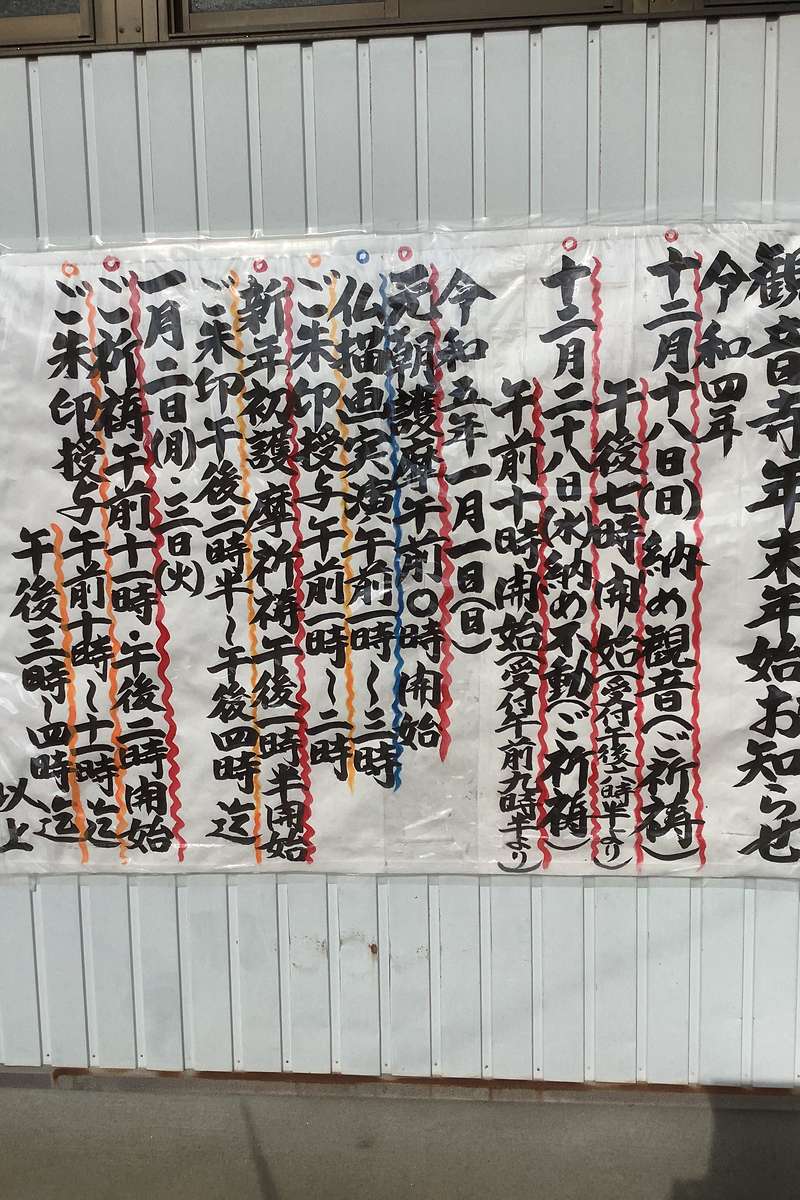 観音寺年末年始お知らせ
令和四年
十二月十八日(日)納め観音(ご祈祷)
午後七時開始(受付午後六時半より)
十二月二十八日(水)納め不動(ご祈祷)
午前十時開始(受付午前九時半より)
令和五年一月一日(日)
元朝護摩午前〇時開始
仏描画実演午前一時〜二時
ご朱印授与午前一時〜二時
新年初護摩祈祷午後一時半開始
ご朱印午後二時半〜午後四時迄
一月二日(月)・三日(火)
ご祈祷午前十一時・午後二時開始
ご朱印授与午前十時〜十一時迄
午後三時〜四時迄
以上